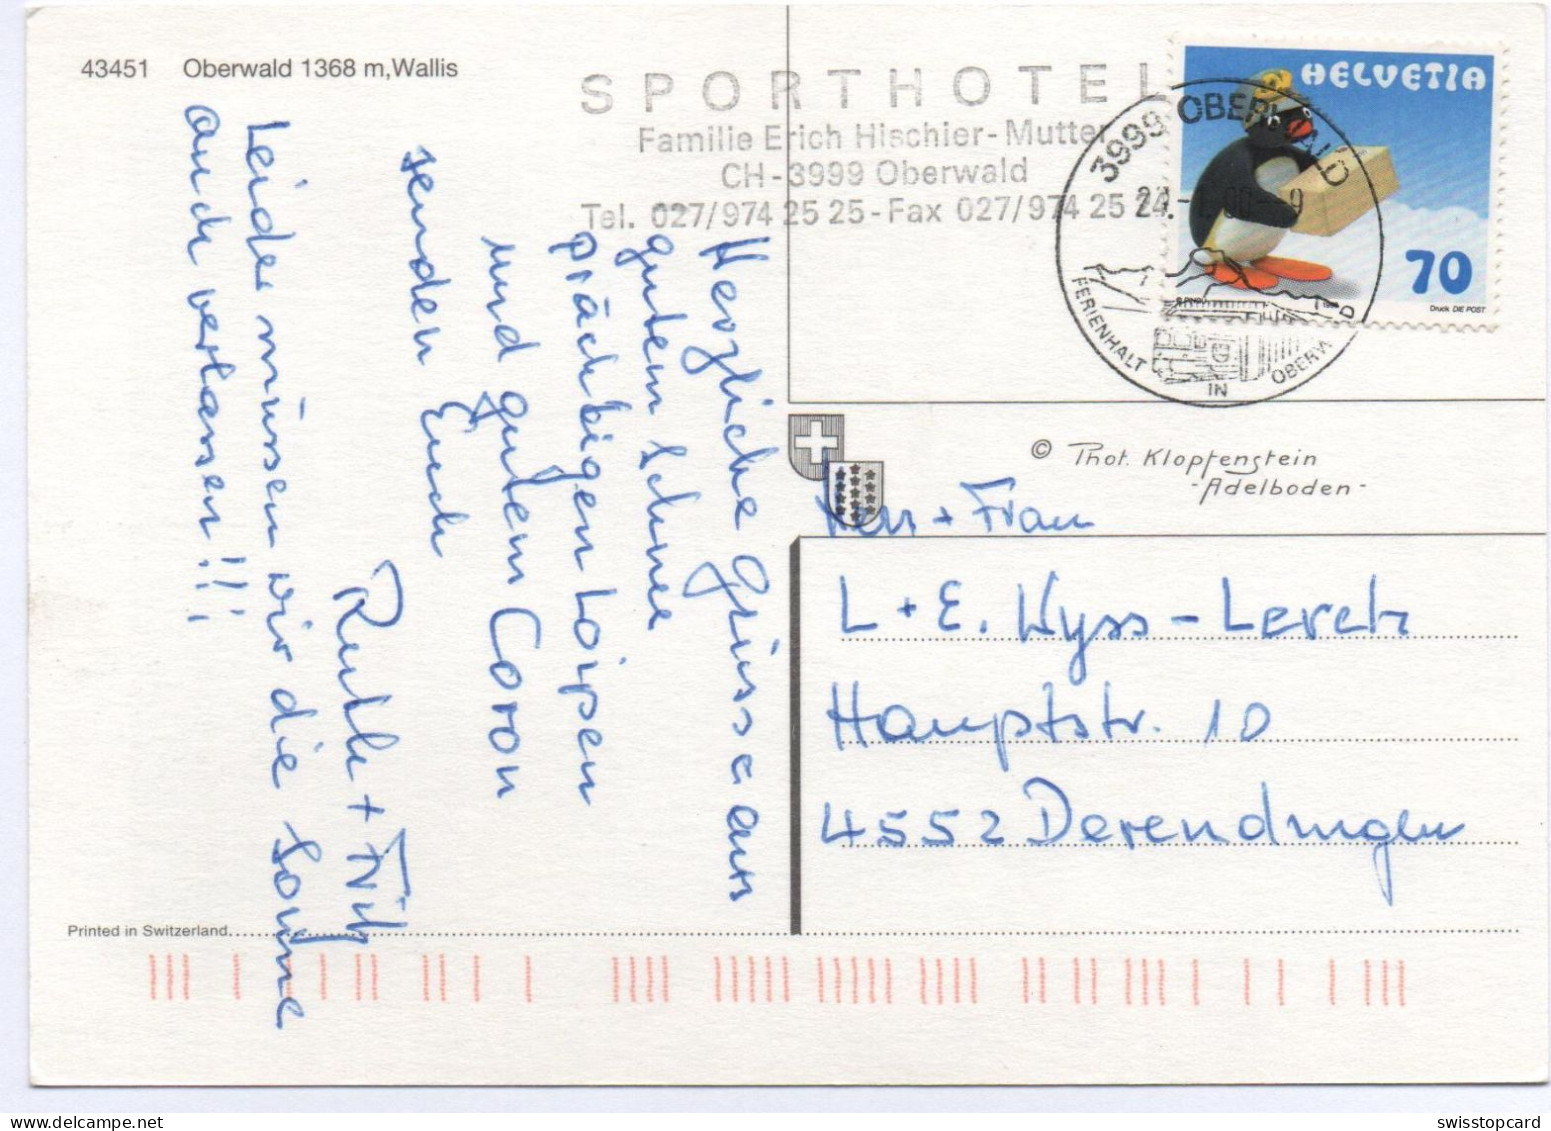 43451 Oberwald 1368 m,Wallis
SPORTHOTEL
Familie Erich Hischier-Mutter
CH-3999 Oberwald
Tel. 027/974 25 25-Fax 027/974 25 24
HELVETIA
70
Druck DIE POST
3999 OBERWALD
FERIENHALT IN OBERWALD
© Phot. Klopfenstein
-Adelboden-
Herzliche Grüsse aus
gutem Schnee
prächtigen Loipen
und gutem Coron
senden Euch
Ruth + Fritz
Leider müssen wir die Sonne
auch verlassen!!!
Herr + Frau
L + E. Wyss-Lerch
Hauptstr. 10
4552 Derendingen
Printed in Switzerland
swisstopcard